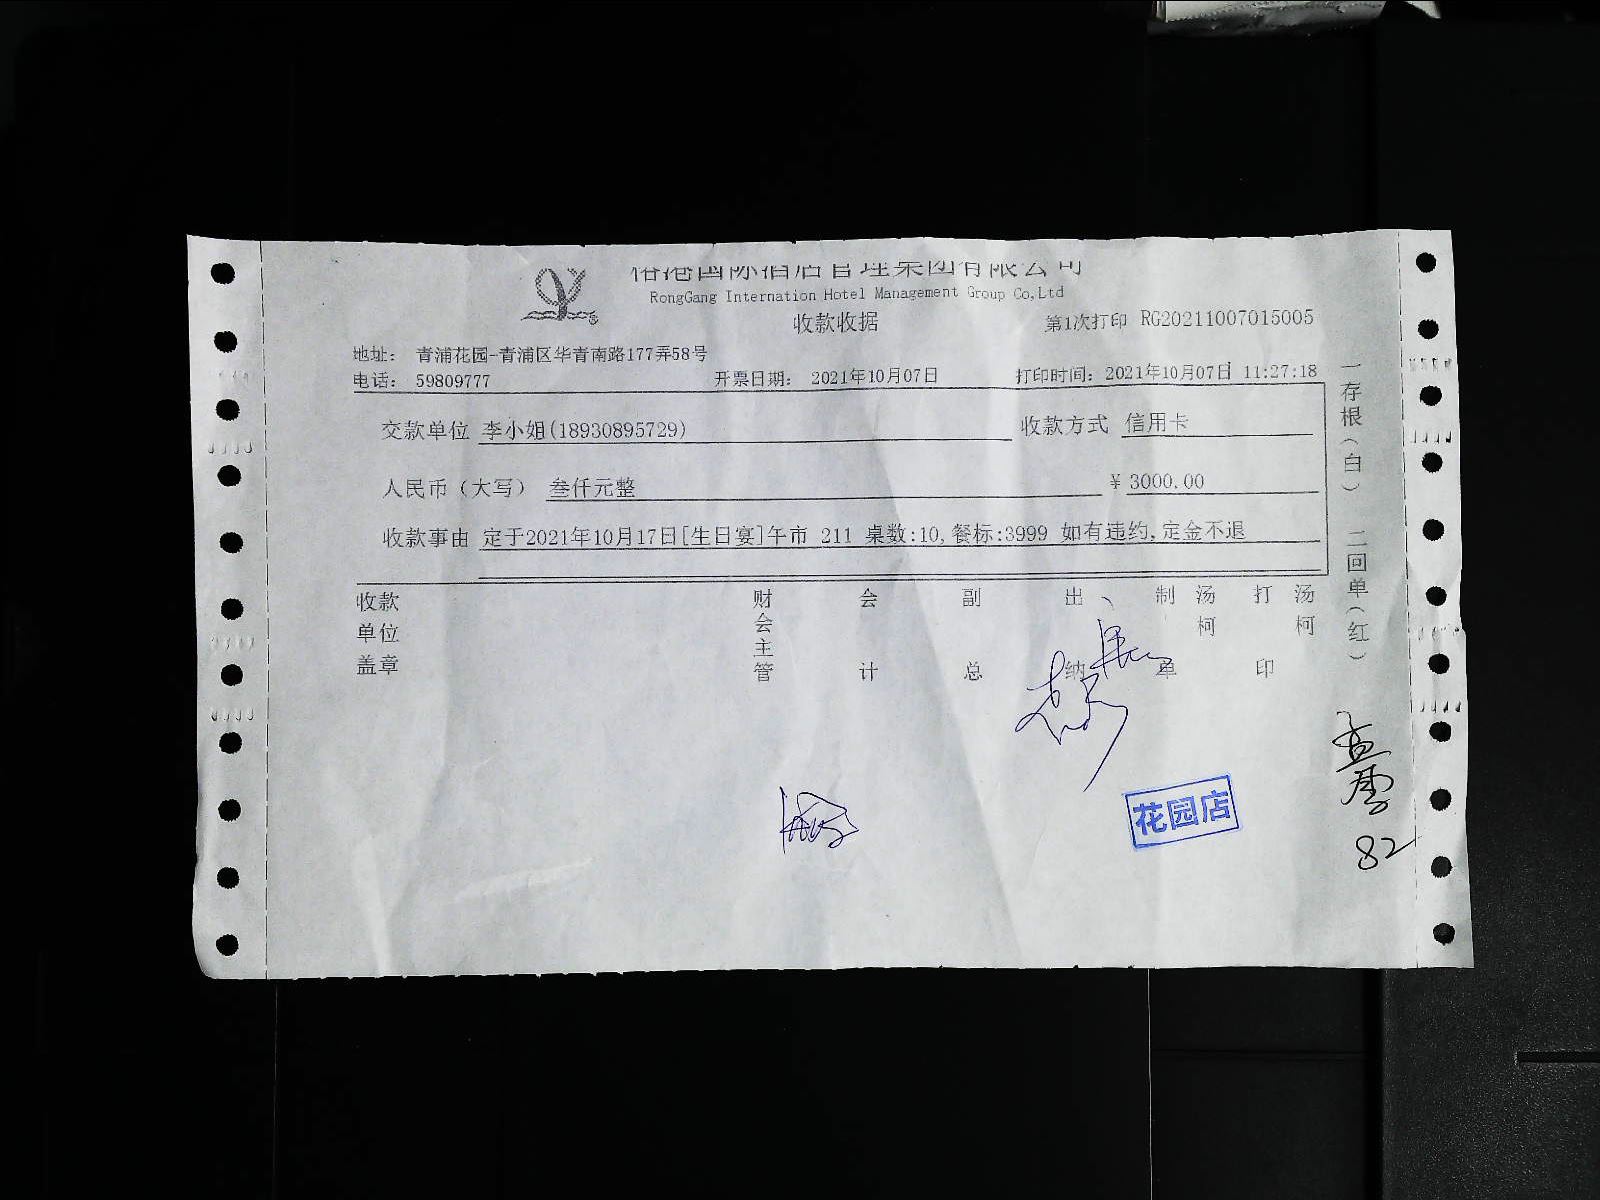 港国际酒店管理集团有限公司
RongGang Internation Hotel Management Group Co,Ltd
收款收据
第1次打印 RG20211007015005
地址： 青浦花园-青浦区华青南路177弄58号
电话： 59809777
开票日期： 2021年10月07日
打印时间：2021年10月07日 11:27:18
交款单位 李小姐(18930895729)
收款方式 信用卡
人民币（大写） 叁仟元整
¥ 3000.00
收款事由 定于2021年10月17日[生日宴]午市 211 桌数:10,餐标:3999 如有违约,定金不退
收款单位盖章
财会主管
会计
副总
出纳
制单
汤柯
打印
汤柯
一存根（白） 二回单（红）
花园店
82